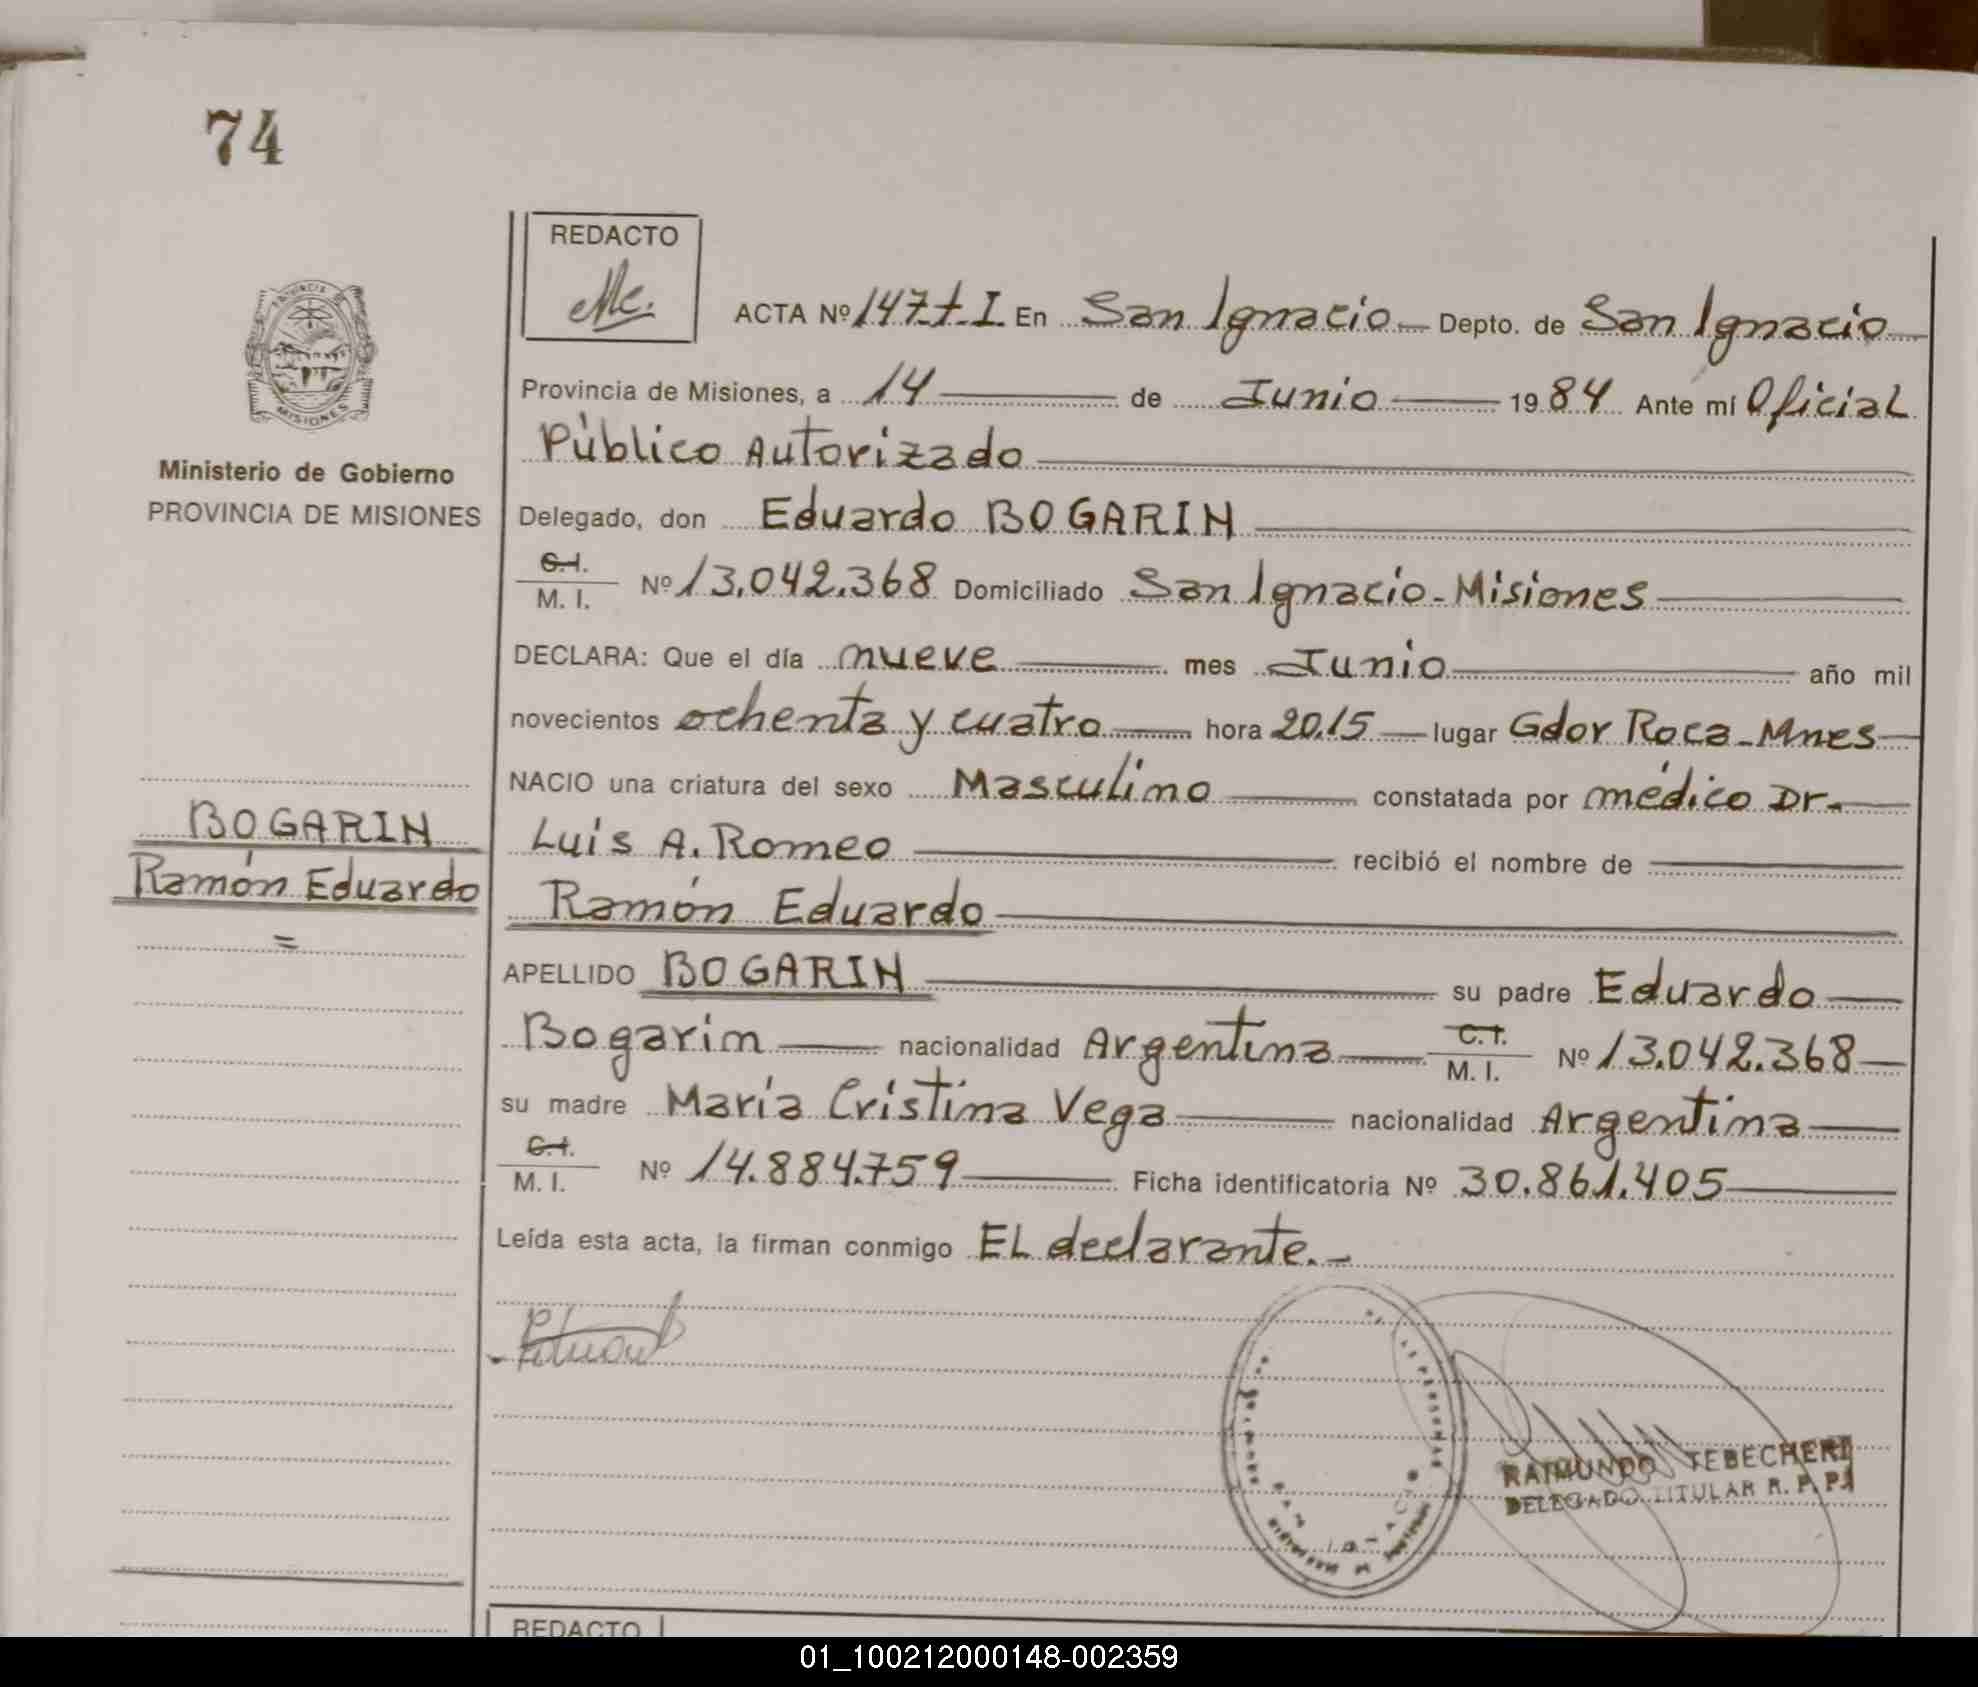 74
REDACTO
ACTA Nº 147-t-I. En San Ignacio Depto. de San Ignacio
Provincia de Misiones, a 14 de Junio 1984 Ante mí Oficial
Público Autorizado
Ministerio de Gobierno
PROVINCIA DE MISIONES
Delegado, don Eduardo BOGARIN
C.I.
M. I. Nº 13.042.368 Domiciliado San Ignacio-Misiones
DECLARA: Que el día nueve mes Junio año mil
novecientos ochenta y cuatro hora 20.15 lugar Gdor Roca-Mnes
NACIO una criatura del sexo Masculino constatada por médico Dr.
BOGARIN
Ramón Eduardo
=
Luis A. Romeo recibió el nombre de
Ramón Eduardo
APELLIDO BOGARIN su padre Eduardo
Bogarin nacionalidad Argentina C.I. M. I. Nº 13.042.368
su madre María Cristina Vega nacionalidad Argentina
C.I.
M. I. Nº 14.884.759 Ficha identificatoria Nº 30.861.405
Leída esta acta, la firman conmigo EL declarante.-
RAIMUNDO TEBECHERI
DELEGADO TITULAR R. P. P.
REDACTO
01_100212000148-002359